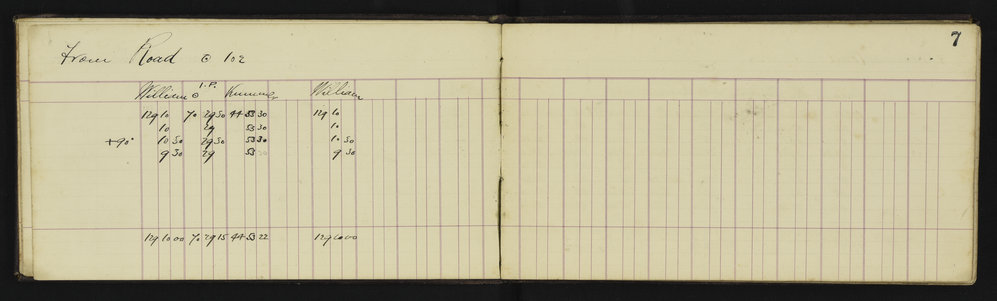 7
From Road ⊙ 102
I.P.
William ⊙ Kummer William
129 10 70 29 30 44 53 30 129 10
10 29 53 30 10
+90° 10 30 29 30 53 30 10 30
9 30 29 53 30 9 30
129 10 00 70 29 15 44 53 22 129 10 00